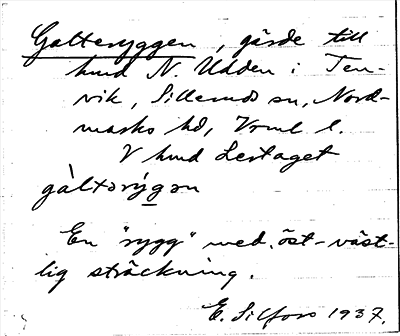 Galteryggen, gärde till
hmd N. Udden i Ten-
vik, Silleruds sn, Nord-
marks hd, Vrml l.
V hmd Lertaget
gàltərýgən
En "rygg" med öst-väst-
lig sträckning.
E. Silfors 1937.